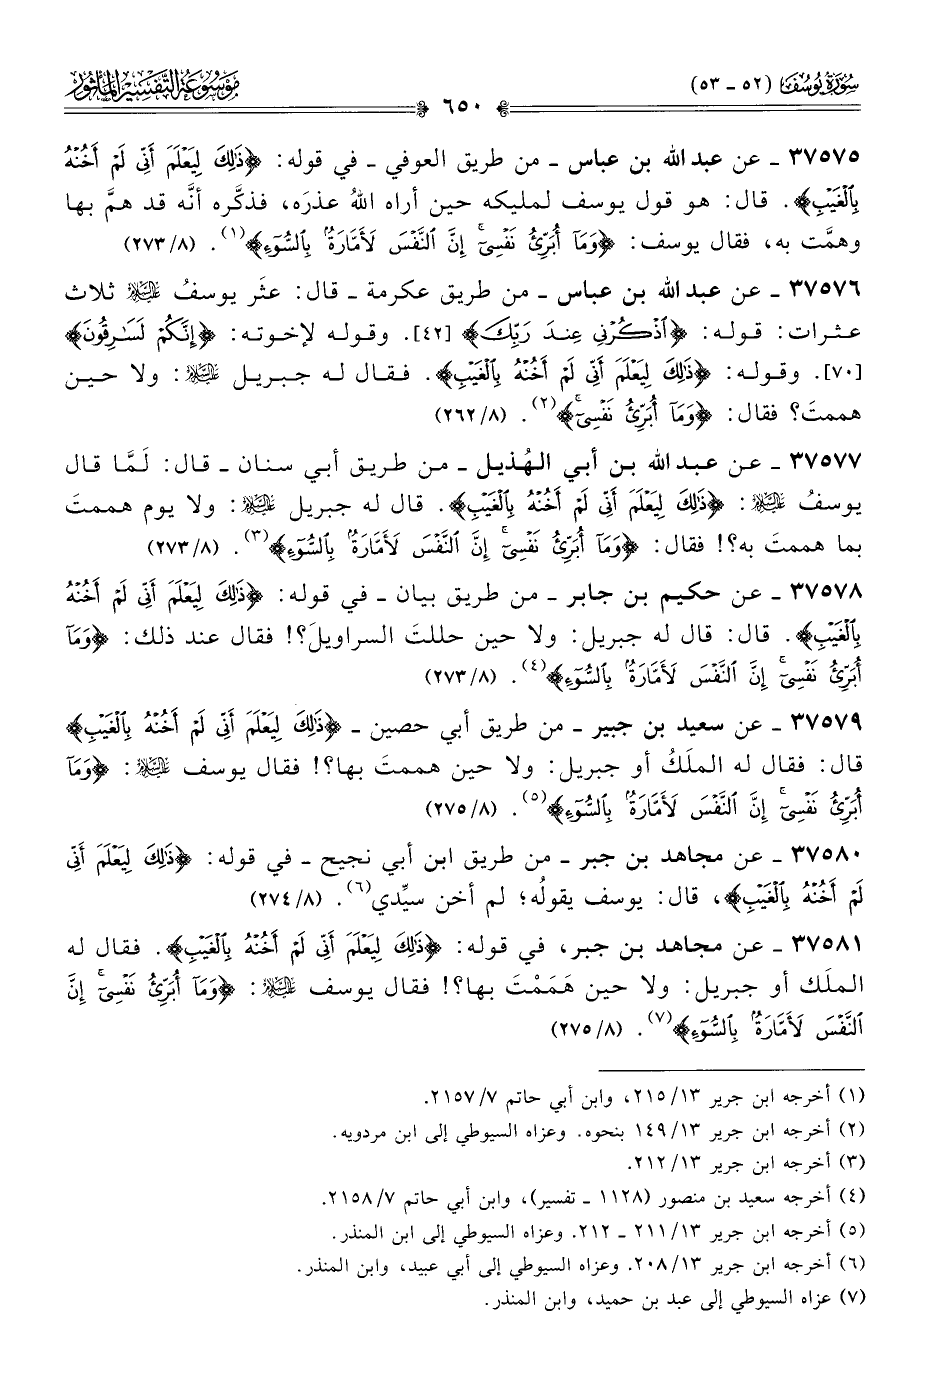 سُورَةُ يُوسُفَ (٥٢ - ٥٣)
٦٥٠
مَوْسُوعَةُ التَّفْسِيرِ المَأْثُورِ
٣٧٥٧٥ - عن عبد الله بن عباس - من طريق العوفي - في قوله: ﴿ذَٰلِكَ لِيَعْلَمَ أَنِّي لَمْ أَخُنْهُ
بِالْغَيْبِ﴾. قال: هو قول يوسف لمليكه حين أراه اللهُ عذرَه، فذكَّره أنَّه قد همَّ بها
وهمَّت به، فقال يوسف: ﴿وَمَآ أُبَرِّئُ نَفْسِيٓۚ إِنَّ ٱلنَّفْسَ لَأَمَّارَةُۢ بِٱلسُّوٓءِ﴾(١). (٢٧٣/٨)
٣٧٥٧٦ - عن عبد الله بن عباس - من طريق عكرمة - قال: عثَر يوسفُ عليه السلام ثلاث
عثرات: قوله: ﴿ٱذْكُرْنِي عِندَ رَبِّكَ﴾ [٤٢]. وقوله لإخوته: ﴿إِنَّكُمْ لَسَٰرِقُونَ﴾
[٧٠]. وقوله: ﴿ذَٰلِكَ لِيَعْلَمَ أَنِّي لَمْ أَخُنْهُ بِٱلْغَيْبِ﴾. فقال له جبريل عليه السلام: ولا حين
هممتَ؟ فقال: ﴿وَمَآ أُبَرِّئُ نَفْسِيٓۚ﴾(٢). (٢٦٢/٨)
٣٧٥٧٧ - عن عبد الله بن أبي الهُذيل - من طريق أبي سنان - قال: لَمَّا قال
يوسفُ عليه السلام: ﴿ذَٰلِكَ لِيَعْلَمَ أَنِّي لَمْ أَخُنْهُ بِٱلْغَيْبِ﴾. قال له جبريل عليه السلام: ولا يوم هممتَ
بما هممتَ به؟! فقال: ﴿وَمَآ أُبَرِّئُ نَفْسِيٓۚ إِنَّ ٱلنَّفْسَ لَأَمَّارَةُۢ بِٱلسُّوٓءِ﴾(٣). (٢٧٣/٨)
٣٧٥٧٨ - عن حكيم بن جابر - من طريق بيان - في قوله: ﴿ذَٰلِكَ لِيَعْلَمَ أَنِّي لَمْ أَخُنْهُ
بِٱلْغَيْبِ﴾. قال: قال له جبريل: ولا حين حللتَ السراويلَ؟! فقال عند ذلك: ﴿وَمَآ
أُبَرِّئُ نَفْسِيٓۚ إِنَّ ٱلنَّفْسَ لَأَمَّارَةُۢ بِٱلسُّوٓءِ﴾(٤). (٢٧٣/٨)
٣٧٥٧٩ - عن سعيد بن جبير - من طريق أبي حصين - ﴿ذَٰلِكَ لِيَعْلَمَ أَنِّي لَمْ أَخُنْهُ بِٱلْغَيْبِ﴾
قال: فقال له الملَكُ أو جبريل: ولا حين هممتَ بها؟! فقال يوسف عليه السلام: ﴿وَمَآ
أُبَرِّئُ نَفْسِيٓۚ إِنَّ ٱلنَّفْسَ لَأَمَّارَةُۢ بِٱلسُّوٓءِ﴾(٥). (٢٧٥/٨)
٣٧٥٨٠ - عن مجاهد بن جبر - من طريق ابن أبي نجيح - في قوله: ﴿ذَٰلِكَ لِيَعْلَمَ أَنِّي
لَمْ أَخُنْهُ بِٱلْغَيْبِ﴾، قال: يوسف يقولُه؛ لم أخن سيِّدي(٦). (٢٧٤/٨)
٣٧٥٨١ - عن مجاهد بن جبر، في قوله: ﴿ذَٰلِكَ لِيَعْلَمَ أَنِّي لَمْ أَخُنْهُ بِٱلْغَيْبِ﴾. فقال له
الملَك أو جبريل: ولا حين هَمَمْتَ بها؟! فقال يوسف عليه السلام: ﴿وَمَآ أُبَرِّئُ نَفْسِيٓۚ إِنَّ
ٱلنَّفْسَ لَأَمَّارَةُۢ بِٱلسُّوٓءِ﴾(٧). (٢٧٥/٨)
(١) أخرجه ابن جرير ٢١٥/١٣، وابن أبي حاتم ٢١٥٧/٧.
(٢) أخرجه ابن جرير ١٤٩/١٣ بنحوه. وعزاه السيوطي إلى ابن مردويه.
(٣) أخرجه ابن جرير ٢١٢/١٣.
(٤) أخرجه سعيد بن منصور (١١٢٨ - تفسير)، وابن أبي حاتم ٢١٥٨/٧.
(٥) أخرجه ابن جرير ٢١١/١٣ - ٢١٢. وعزاه السيوطي إلى ابن المنذر.
(٦) أخرجه ابن جرير ٢٠٨/١٣. وعزاه السيوطي إلى أبي عبيد، وابن المنذر.
(٧) عزاه السيوطي إلى عبد بن حميد، وابن المنذر.